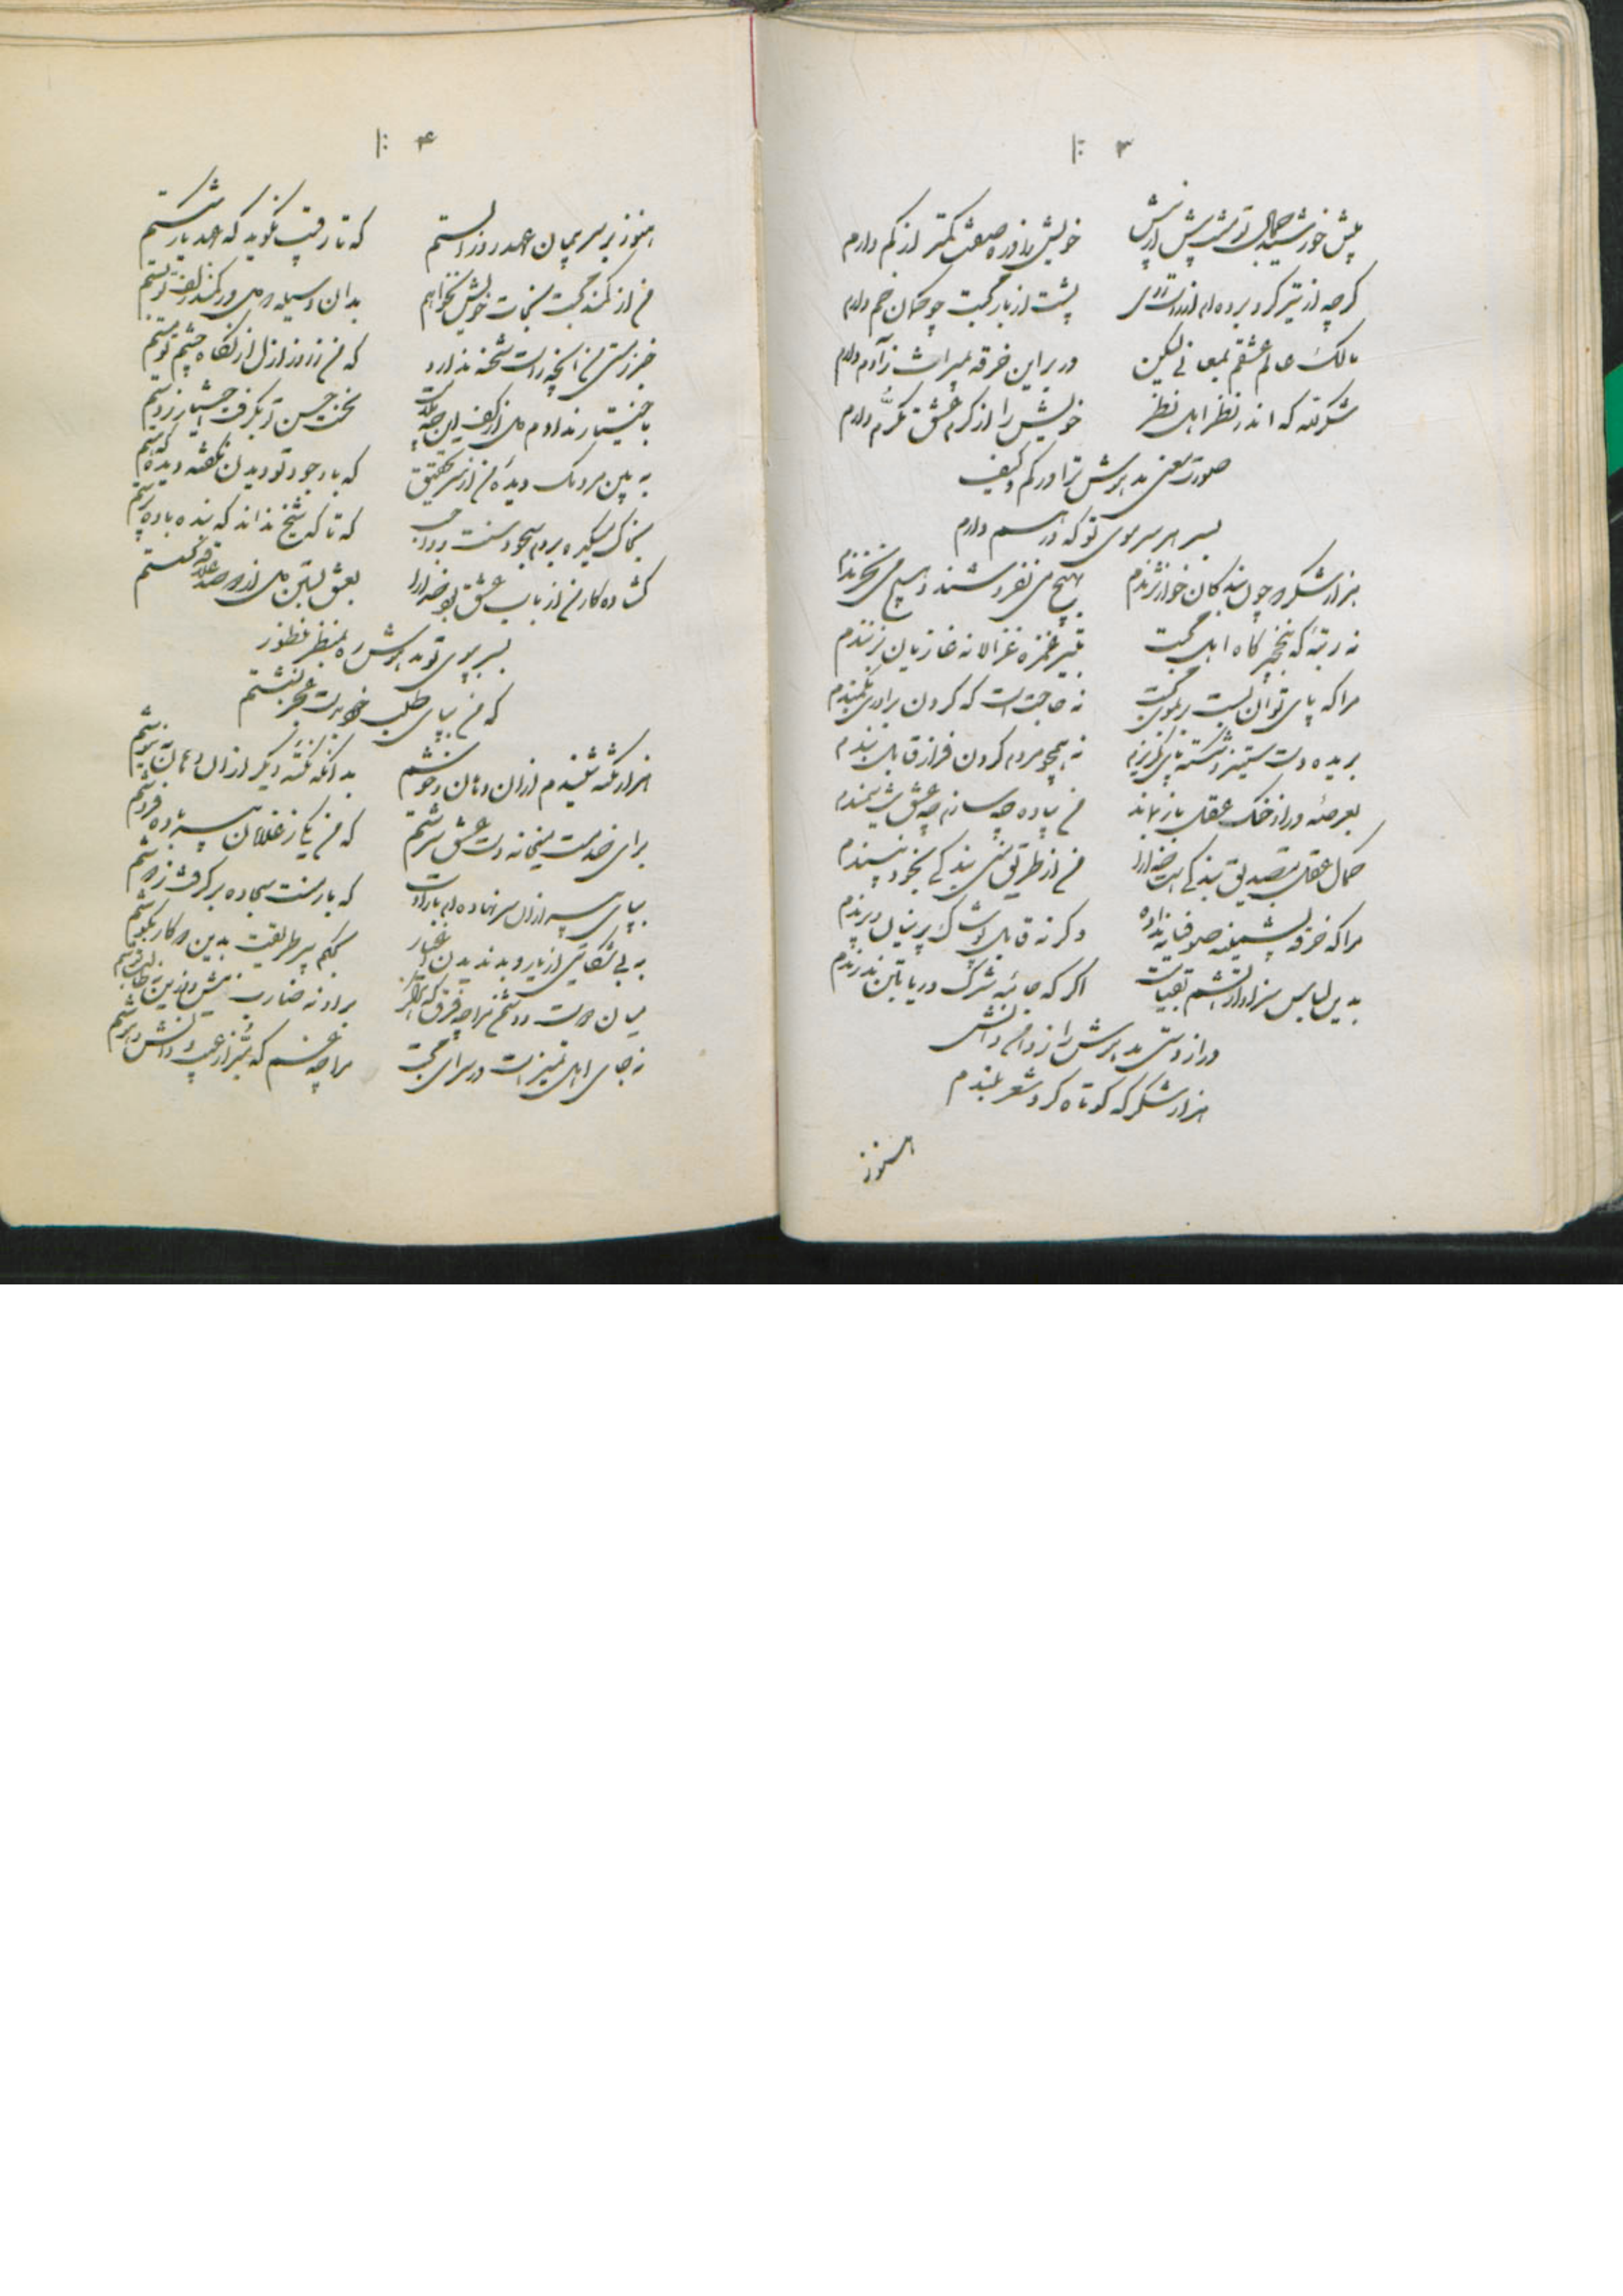 ۱۰۳
پیش خورشید جمال تو
خویش را ذره صفت کمتر از کم دارم
گرچه از تیر گرو برده‌ام از راست روی
پشت از بار محبت چو کمان خم دارم
مالک عالم عشقم بمعانی لیکن
در بر این خرقه بمیراث ز آدم دارم
شکر لله که اندر نظر اهل نظر
خویش را از کرم عشق مکرم دارم
صورت معنی مدهوش ترا در کم و کیف
بسر هر سر موی تو که در هم دارم
هزار شکر که چون بندگان خوار نژندم
بهیچ می نفروشند و هیچ می نخرندم
نه رتبهٔ که بنخچیرگاه اهل محبت
بتیر غمزه غزالانه غازیان بزنندم
مرا که پای توان بست بموی محبت
نه حاجت است که گردن برآوری بکمندم
بریده دست ستیز و شکسته پای گریزم
نه همچو مردم گردن فراز قابل بندم
بعرصهٔ در از خنگ عقل باز بماند
من پیاده چه سازم چه عشق سمندم
کمال عقل بتصدیق بندگی است خدا را
من از طریق منی بندگی بخود نپسندم
مرا که خرقهٔ پشمینه صوفیانه نداده
وگرنه قابل پوشاک پرنیان و پرندم
بدین لباس سزاوار
اگر که جامهٔ شرک و ریا بتن بدرندم
دراز دستی مدهوش را ز دامن دانش
هزار شکر که کوتاه کرد شعر بلندم
هنوز
۱۰۴
هنوز بر سر پیمان عهد روز الستم
که تا رقیب نگوید که عهد یار شکستم
من از کمند محبت نجات خویش نخواهم
بدان وسیله که دل در کمند زلف تو بستم
خبر ز مستی من آنچه راست شحنه ندارد
که من ز روز ازل از نگاه چشم تو مستم
باختیار ندادم دل از کف این چه ملامت
نخست حسن تو بگرفت اختیار ز دستم
به بین مردمک دیدهٔ من از سر تحقیق
که با وجود تو دیدن نگفته دیده که هستم
بخاک میکده بردم سجود سنت و واجب
که تا که شیخ نداند که بنده باده پرستم
گشاده کار من از باب عشق بود خدا را
بعشق بستن دل از دو صد علاقه گسستم
بسر بپوی تو مدهوش ره بمنظر منظور
که من بپای طلب خود بر سر
هزار نکته شنیدم از آن دهان و خموشم
بدانکه نکته دیگر از آن دهان بنیوشم
برای خدمت میخانه دست عشق سرشتم
که من یکی ز غلامان پیر باده فروشم
بپای پیر از آن سر نهاده‌ام بارادت
که بار منت سجاده برگرفت ز دوشم
به بی شکایتی از یار و بد ندیدن اغیار
بحکم پیر طریقت بدین دو کار بکوشم
میان دوست و دشمن مرا چه فرق
نه جای اهل تمیز است در سرای محبت
مرا چه غم که مبرا ز عیب دانش و هوشم